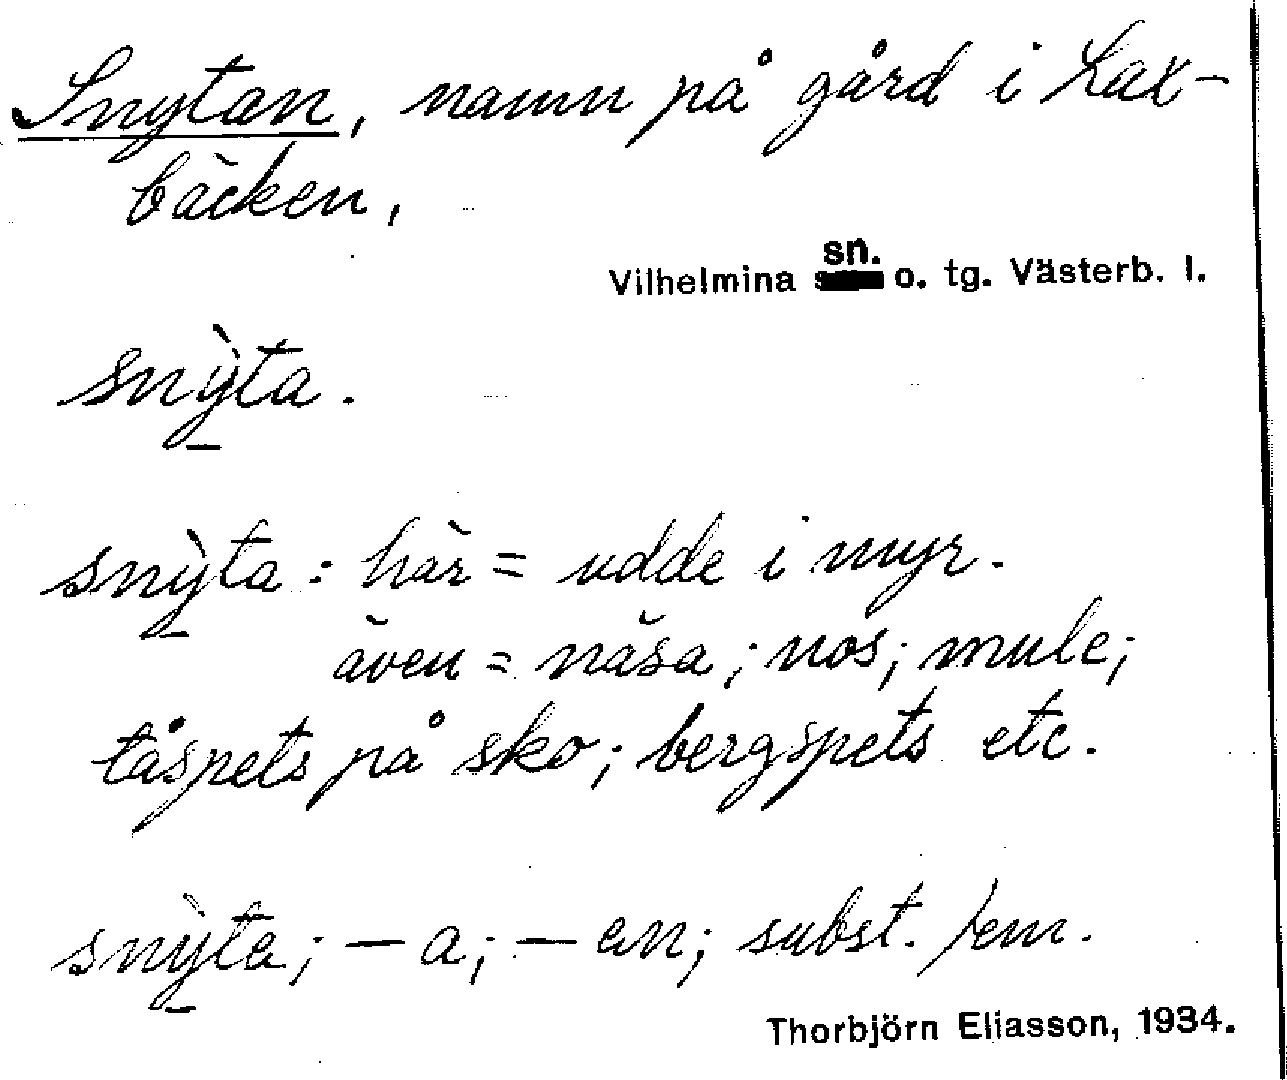 Snytan, namn på gård i Lax-
bäcken,
Vilhelmina sn. o. tg. Västerb. l.
snỳta.
snỳta: här = udde i myr.
även = näsa; nos; mule;
tåspets på sko; bergspets etc.
snỳta; — a; — en; subst. fem.
Thorbjörn Eliasson, 1934.